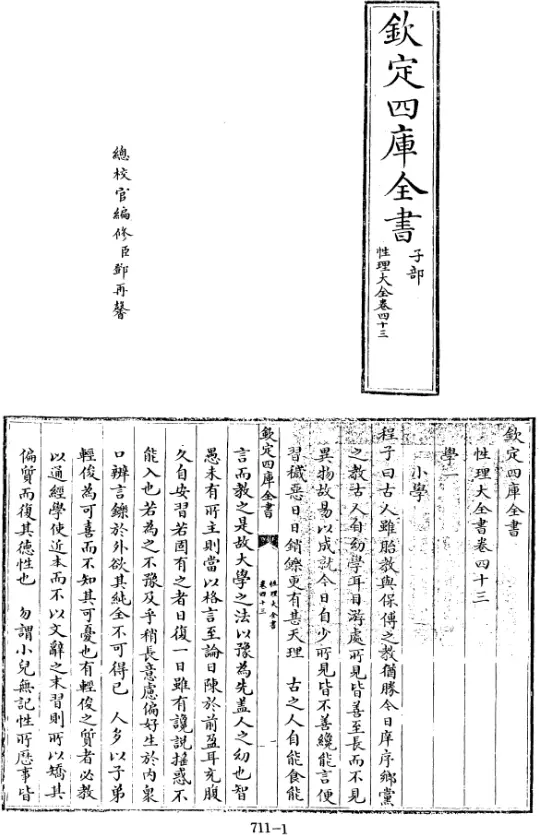 欽定四庫全書
子部
性理大全卷四十三
總校官編修臣鄧再馨
欽定四庫全書
性理大全書卷四十三
學一
小學
程子曰古人雖胎教與保傅之教猶勝今日庠序鄉黨
之教古人自幼學耳目游處所見皆善至長而不見
異物故易以成就今日自少所見皆不善纔能言便
習穢惡日日銷鑠更有甚天理 古之人自能食能
欽定四庫全書
性理大全書
卷四十三
一
言而教之是故大學之法以豫為先蓋人之幼也智
愚未有所主則當以格言至論日陳於前盈耳充腹
久自安習若固有之者日復一日雖有讒說搖惑不
能入也若為之不豫及乎稍長意慮偏好生於內衆
口辨言鑠於外欲其純全不可得已 人多以子弟
輕俊為可喜而不知其可憂也有輕俊之質者必教
以通經學使近本而不以文辭之末習則所以矯其
偏質而復其德性也 勿謂小兒無記性所歷事皆
711-1